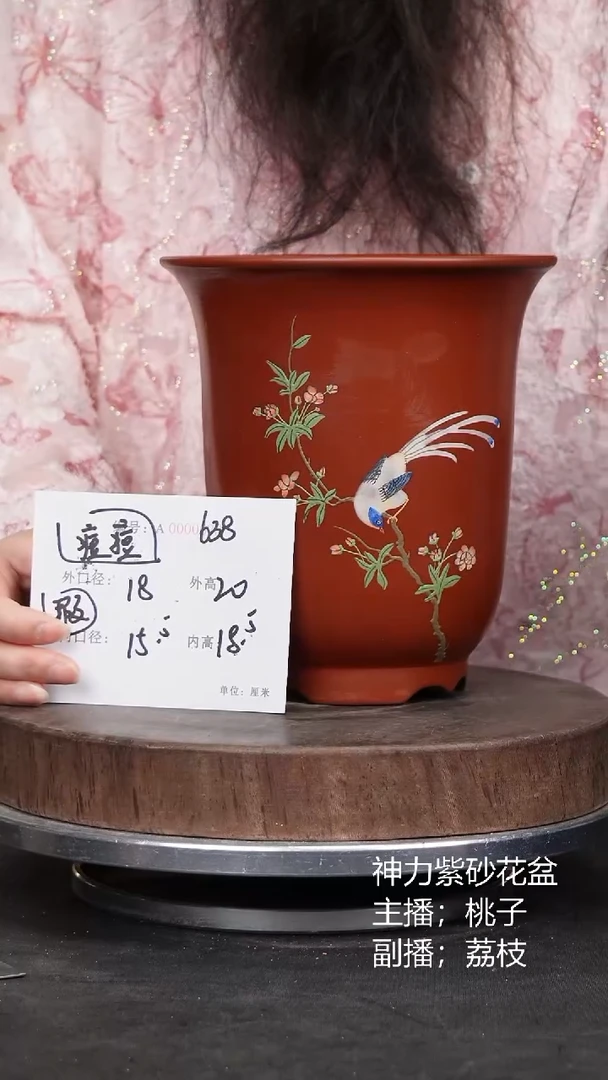 号：A 0000 638
痘痘
外口径：18 外高 20
瑕
内口径：15.5 内高 18.5
单位：厘米
神力紫砂花盆
主播；桃子
副播；荔枝